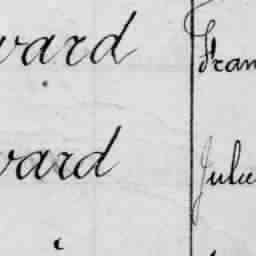 ward Fran
ward Juli